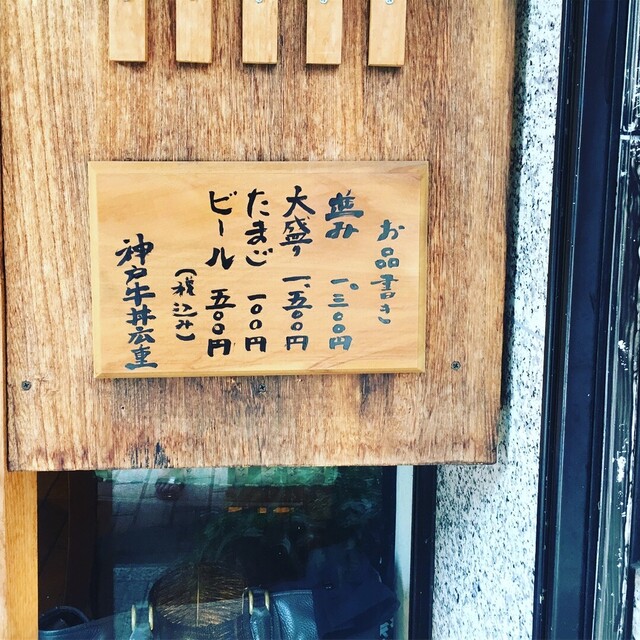 お品書き
並み 一、三〇〇円
大盛り 一、五〇〇円
たまご 一〇〇円
ビール 五〇〇円
(税込み)
神戸牛丼広重